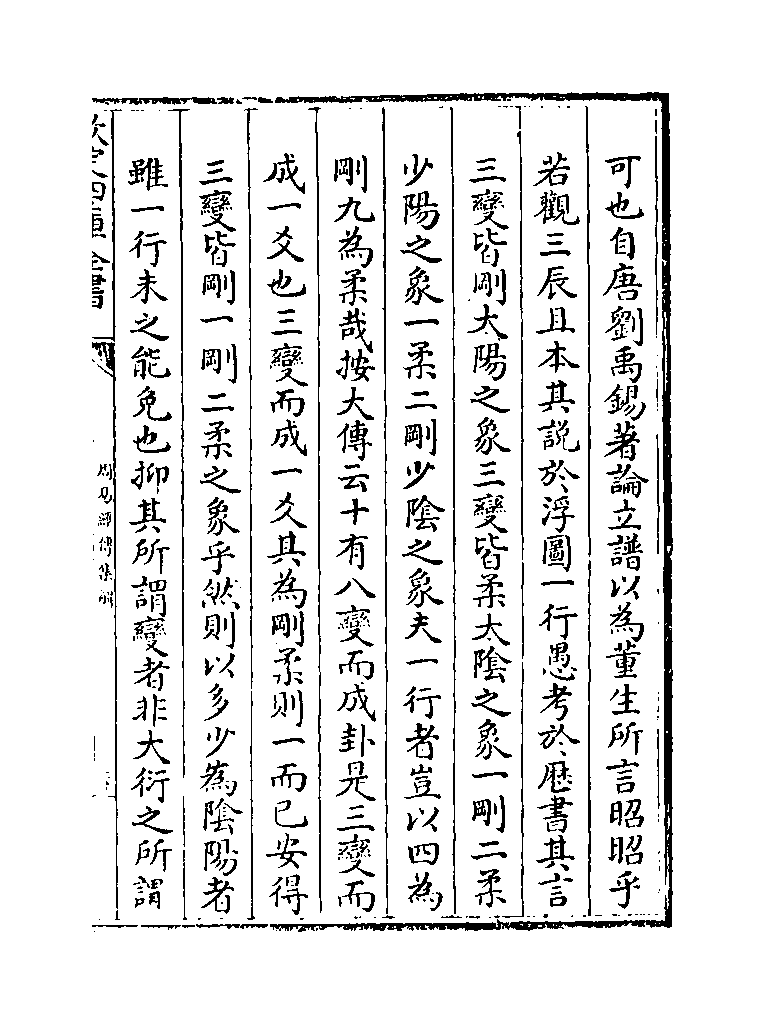 可也自唐劉禹錫著論立譜以為董生所言昭昭乎
若觀三辰且本其說於浮圖一行愚考於厯書其言
三變皆剛太陽之象三變皆柔太陰之象一剛二柔
少陽之象一柔二剛少陰之象夫一行者豈以四為
剛九為柔哉按大傳云十有八變而成卦是三變而
成一爻也三變而成一爻其為剛柔則一而已安得
三變皆剛一剛二柔之象乎然則以多少為陰陽者
雖一行未之能免也抑其所謂變者非大衍之所謂
欽定四庫全書
周易經傳集解